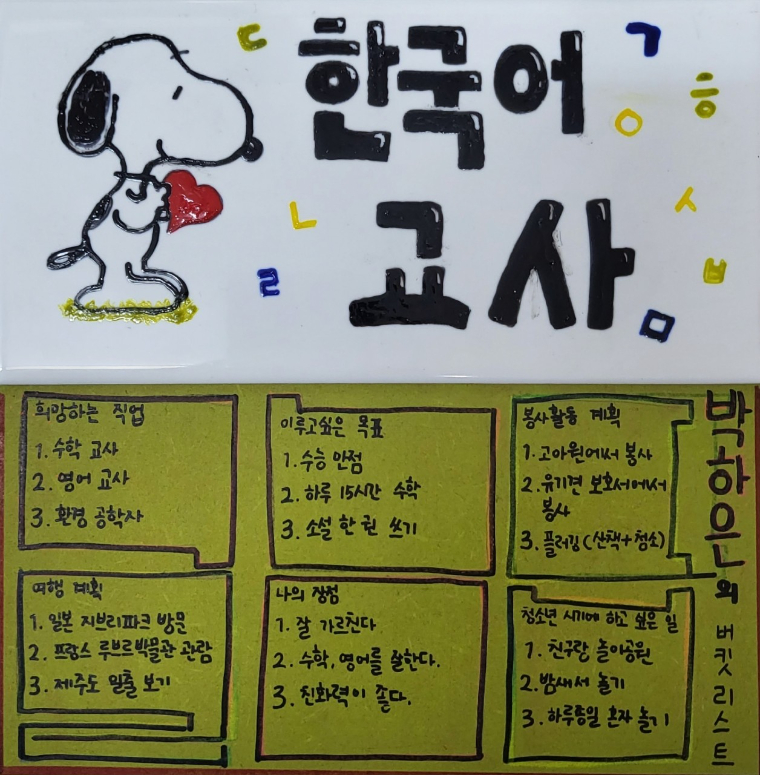 ㄷ
한국어
ㄱ
ㅎ
ㅇ
ㄴ
고사
ㅅ
ㄹ
ㅂ
ㅁ
박하은의 버킷리스트
희망하는 직업
1. 수학 교사
2. 영어 교사
3. 환경 공학자
이루고싶은 목표
1. 수능 만점
2. 하루 15시간 수학
3. 소설 한 권 쓰기
봉사활동 계획
1. 고아원에서 봉사
2. 유기견 보호서에서
봉사
3. 플러깅(산책+청소)
여행 계획
1. 일본 지브리파크 방문
2. 프랑스 루브르박물관 관람
3. 제주도 일출 보기
나의 장점
1. 잘 가르친다
2. 수학, 영어를 잘한다.
3. 친화력이 좋다.
청소년 시기에 하고 싶은 일
1. 친구랑 놀이공원
2. 밤새서 놀기
3. 하루종일 혼자 놀기